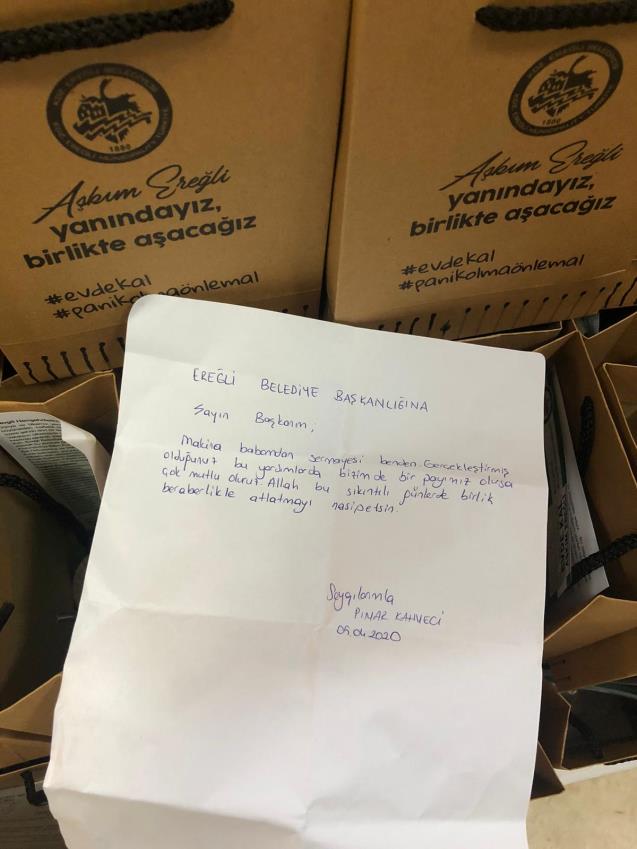 1880
Aşkım Ereğli
yanındayız,
birlikte aşacağız
#evdekal
#panikolmaönlemal
KDZ. EREĞLİ BELEDİYESİ
1880
Aşkım Ereğli
yanındayız,
birlikte aşacağız
#evdekal
#panikolmaönlemal
EREĞLİ BELEDİYE BAŞKANLIĞINA
Sayın Başkanım,
Makina babamdan sermayesi benden. Gerçekleştirmiş
olduğunuz bu yardımlarda bizimde bir payımız olursa
çok mutlu oluruz. Allah bu sıkıntılı günlerde birlik
beraberlikle atlatmayı nasipetsin.
Saygılarımla
PINAR KAHVECİ
09.04.2020